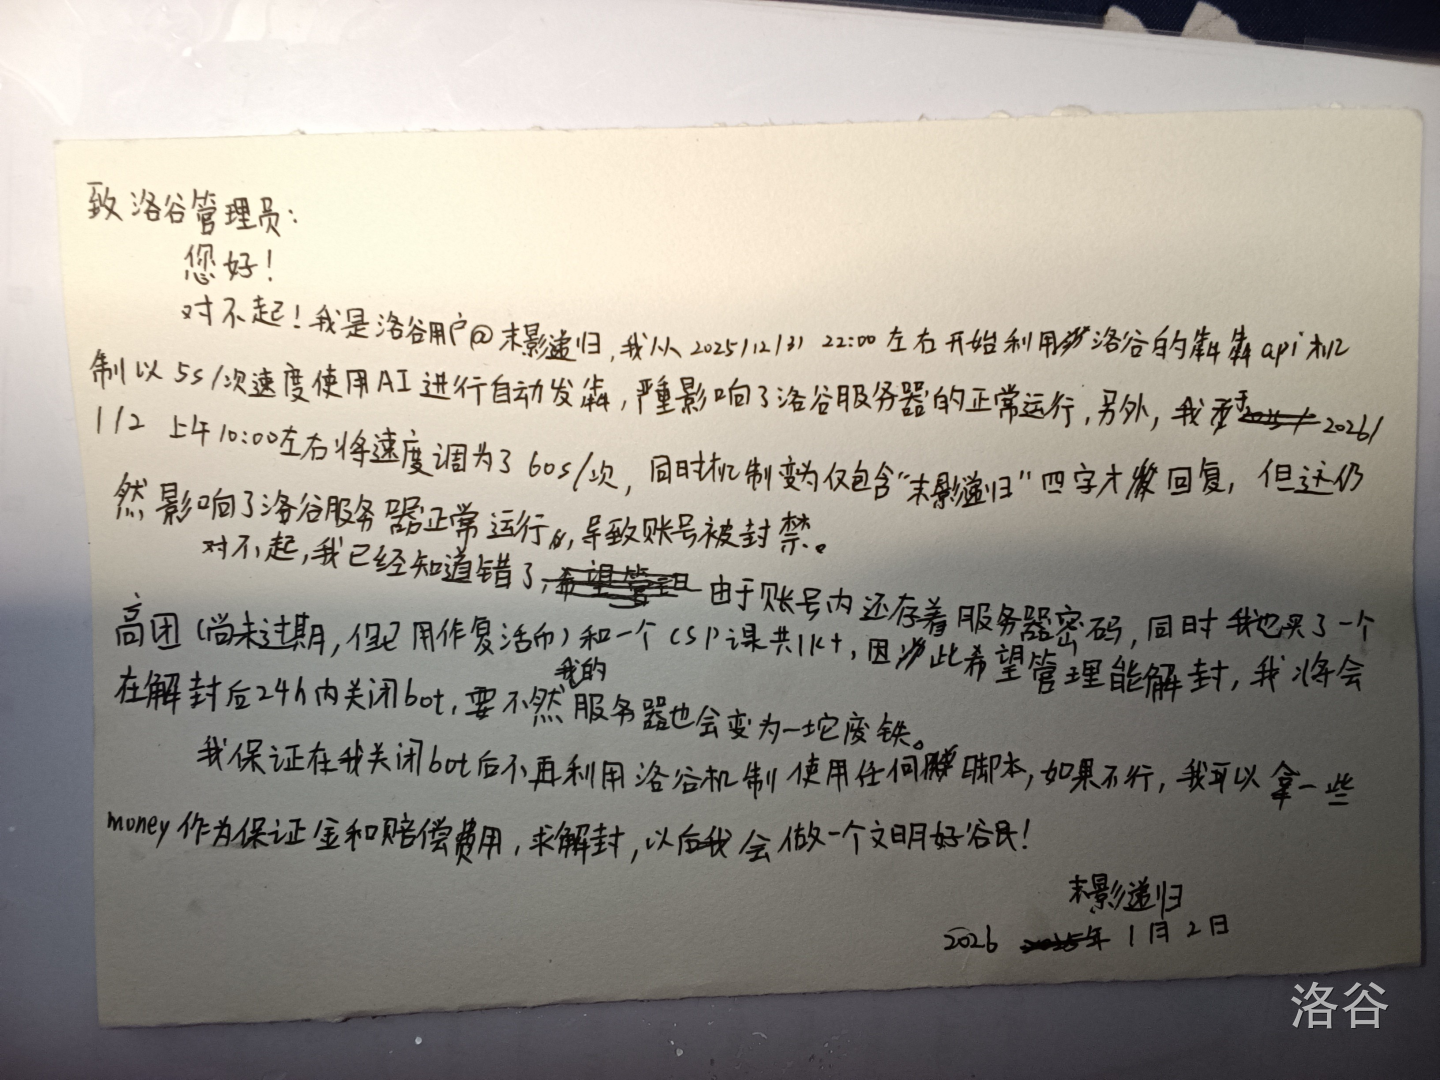 致洛谷管理员：
您好！
对不起！我是洛谷用户@末影递归，我从2025/12/31 22:00左右开始利用洛谷的犇犇api机
制以5s/次速度使用AI进行自动发犇，严重影响了洛谷服务器的正常运行，另外，我于2026/
1/2 上午10:00左右将速度调为了60s/次，同时机制变为仅包含“末影递归”四字才回复，但这仍
然影响了洛谷服务器正常运行，导致账号被封禁。
对不起，我已经知道错了，由于账号内还存着服务器密码，同时我也买了一个
高团（尚未过期，但已用作复活币）和一个CSP课共1k+，因此希望管理能解封，我将会
在解封后24h内关闭bot，要不然我的服务器也会变为一坨废铁。
我保证在我关闭bot后不再利用洛谷机制使用任何脚本，如果不行，我可以拿一些
money作为保证金和赔偿费用，求解封，以后我会做一个文明好谷民！
末影递归
2026 年1月2日
洛谷